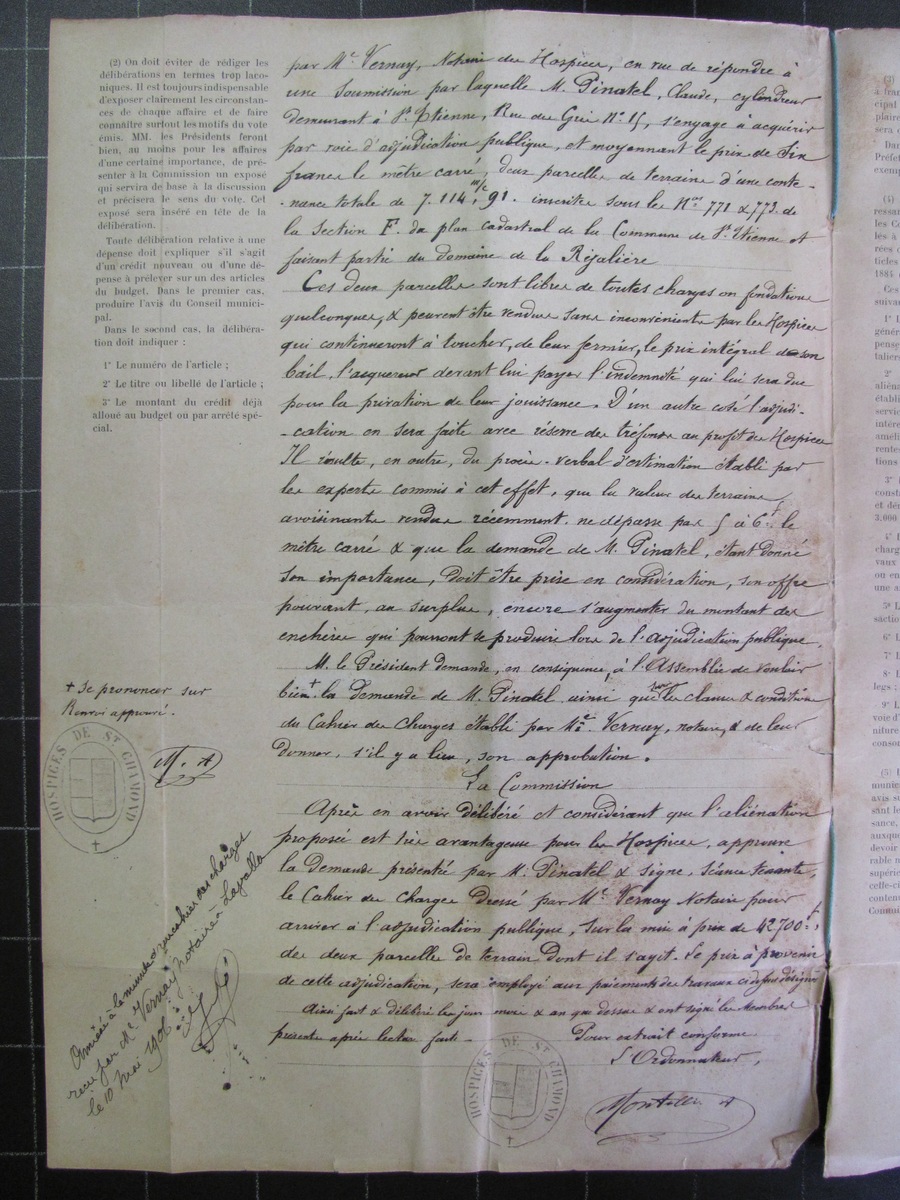 (2) On doit éviter de rédiger les
délibérations en termes trop laco-
niques. Il est toujours indispensable
d'exposer clairement les circonstan-
ces de chaque affaire et de faire
connaître surtout les motifs du vote
émis. MM. les Présidents feront
bien, au moins pour les affaires
d'une certaine importance, de pré-
senter à la Commission un exposé
qui servira de base à la discussion
et précisera le sens du vote. Cet
exposé sera inséré en tête de la
délibération.
Toute délibération relative à une
dépense doit expliquer s'il s'agit
d'un crédit nouveau ou d'une dé-
pense à prélever sur un des articles
du budget. Dans le premier cas,
produire l'avis du Conseil munici-
pal.
Dans le second cas, la délibéra-
tion doit indiquer :
1° Le numéro de l'article ;
2° Le titre ou libellé de l'article ;
3° Le montant du crédit déjà
alloué au budget ou par arrêté spé-
cial.
par Me Vernay, Notaire des Hospices, en vue de répondre à
une soumission par laquelle M. Pinatel, Claude, cylindreur
demeurant à St Etienne, Rue du Gris No 15, s'engage à acquérir
par voie d'adjudication publique, et moyennant le prix de Six
francs le mètre carré, deux parcelles de terrains d'une conte-
-nance totale de 7.114 m/c, 91. inscrites sous les Nos 771 & 773. de
la section F. du plan cadastral de la Commune de St Etienne et
faisant partie du domaine de la Réjalière
Ces deux parcelles sont libres de toutes charges ou fondations
quelconques, & peuvent être vendues sans inconvénients par les Hospices
qui continueront à toucher, de leur fermier, le prix intégral de son
bail, l'acquéreur devant lui payer l'indemnité qui lui sera due
pour la privation de leur jouissance. D'un autre coté l'adjudi-
-cation en sera faite avec réserve des tréfonds au profit des Hospices
Il résulte, en outre, du procès-verbal d'estimation établi par
les experts commis à cet effet, que la valeur des terrains
avoisinants vendus récemment. ne dépasse pas 5 à 6f. le
mètre carré & que la demande de M. Pinatel, étant donné
son importance, doit être prise en considération, son offre
pouvant, au surplus, encore s'augmenter du montant des
enchères qui pourront se produire lors de l'adjudication publique.
M. le Président demande, en conséquence, à l'Assemblée de vouloir
bien + la demande de M. Pinatel ainsi que sur les clauses & conditions
du Cahier des Charges établi par Me. Vernay, notaire, & de leur
donner, s'il y a lieu, son approbation.
+ se prononcer sur
Renvoi approuvé.
M. A
HOSPICES DE St CHAMOND
La Commission
Après en avoir délibéré et considérant que l'aliénation
proposée est très avantageuse pour les Hospices, approuve
la demande présentée par M. Pinatel & signe, séance tenante,
le Cahier des Charges dressé par Me Vernay Notaire pour
arriver à l'adjudication publique, sur la mise à prix de 42700 f.,
des deux parcelles de terrain dont il s'agit. Le prix à provenir
de cette adjudication, sera employé aux paiements des travaux ci-dessus désignés
Ainsi fait & délibéré les jour, mois & an que dessus & ont signé les Membres
présents après lecture faite.
Pour extrait conforme
L'Ordonnateur,
HOSPICES DE St CHAMOND
Annexée à la minute d'un cahier des charges
reçu par Me Vernay notaire à Lavalla
le 10 mai 1906